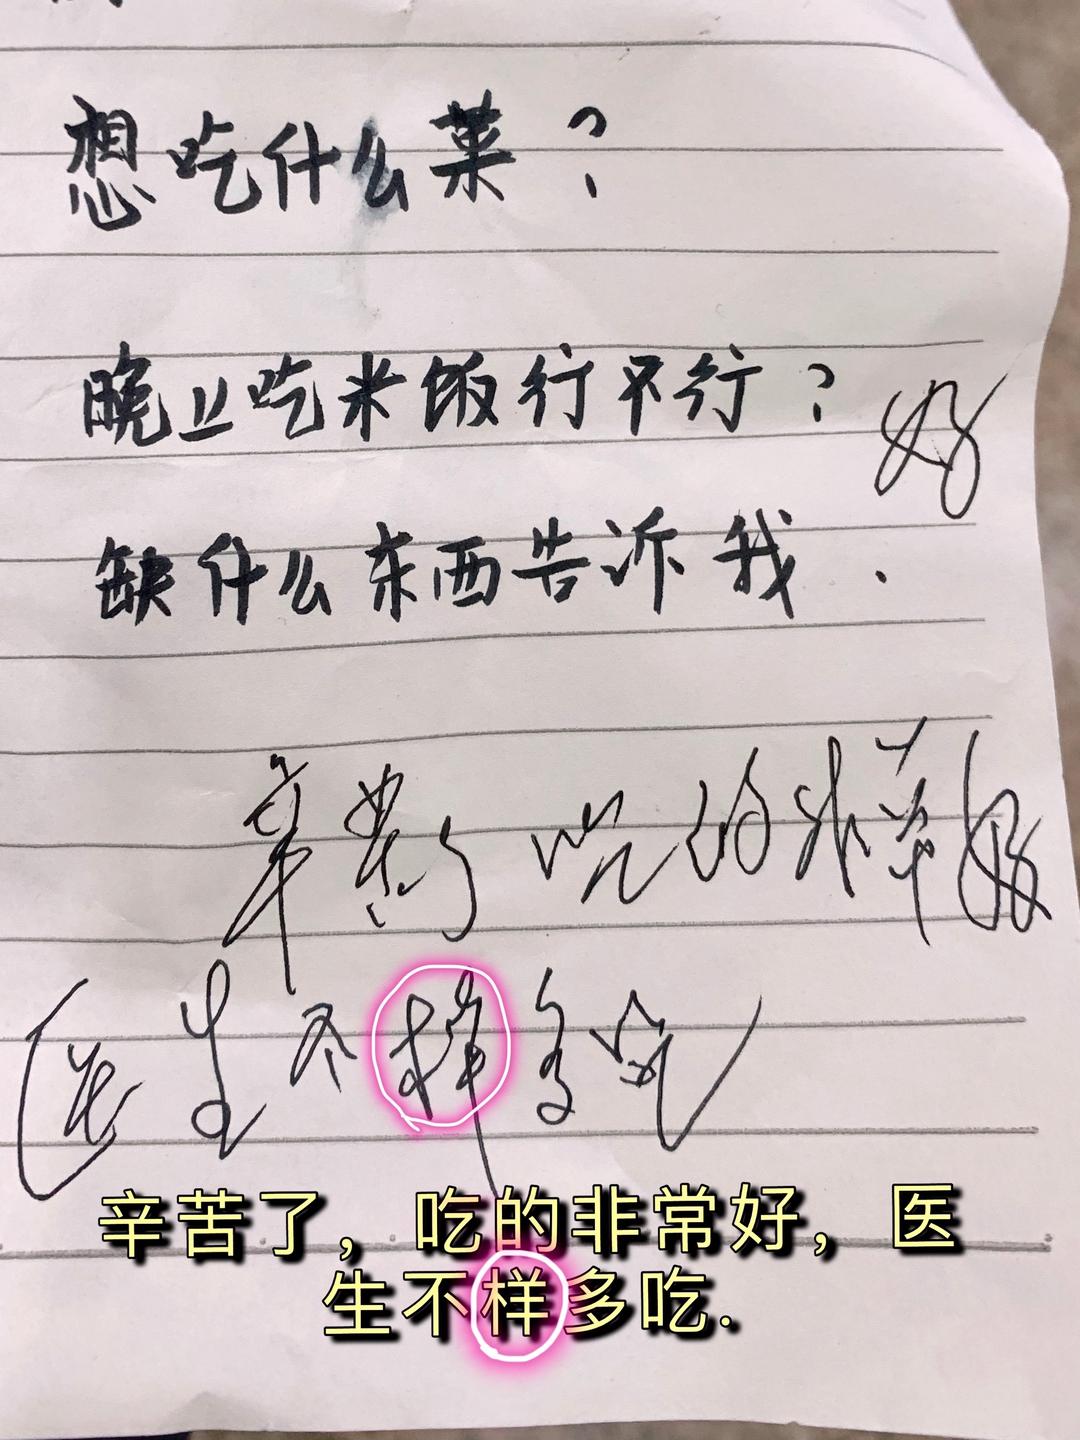 想吃什么菜？
晚上吃米饭行不行？
好
缺什么东西告诉我．
辛苦了 吃的非常好
医生不样多吃
辛苦了，吃的非常好，医
生不样多吃.